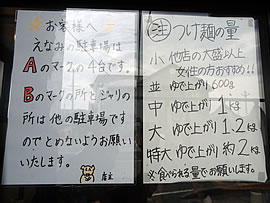 お客様へ
えなみの駐車場は
Aのマークの4台です。
Bのマークの所とジャリの
所は他の駐車場です
のでとめないようお願い
いたします。
店主
注 つけ麺の量
小 他店の大盛以上
女性の方おすすめ!!
並 ゆで上がり600g
中 ゆで上がり1kg
大 ゆで上がり1.2kg
特大 ゆで上がり約2kg
※食べられる量でお願いします。